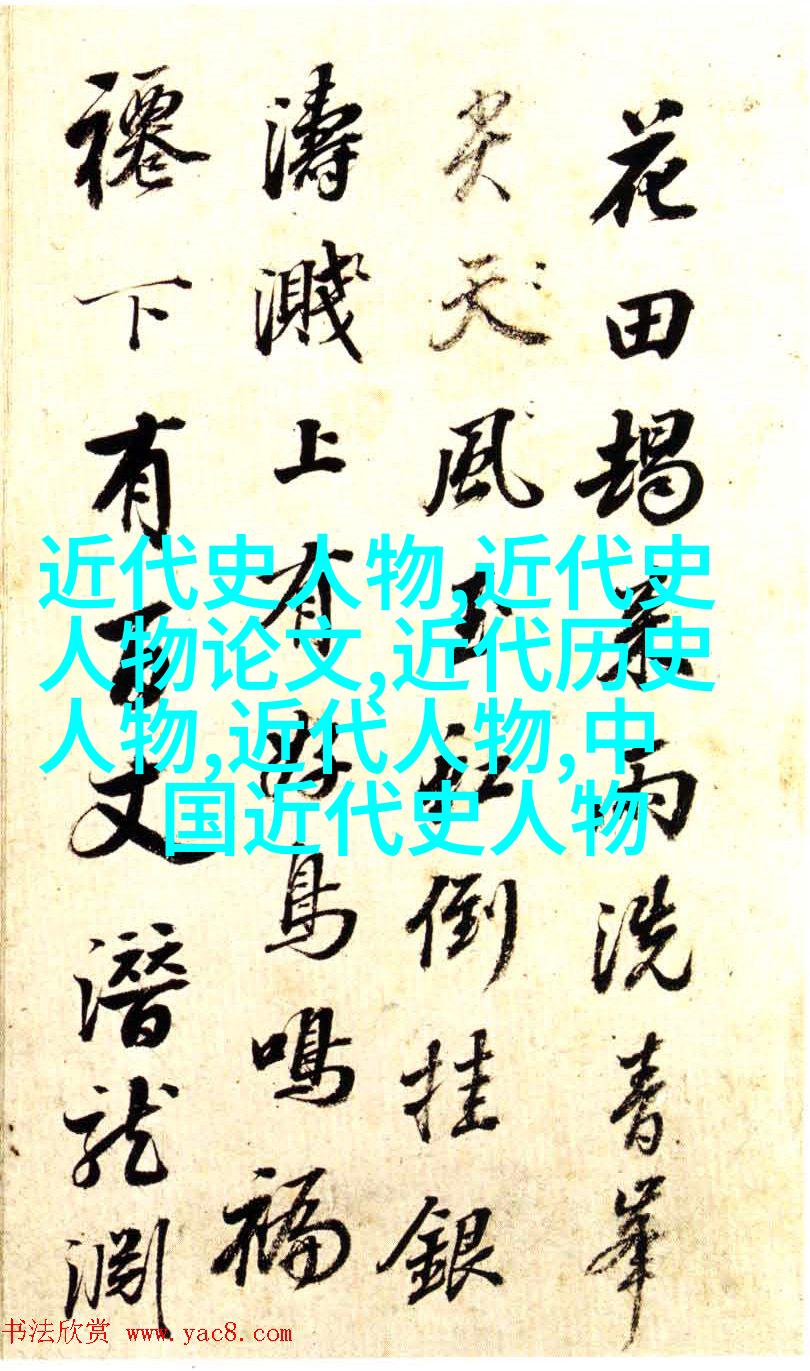 花田朅来雨洗青峯
尖天風玉虹倒挂銀
濤濺上有鳥鳴福
下有百丈潛龍淵
近代史人物,近代史
人物论文,近代历史
人物,近代人物,中
国近代史人物
书法欣赏 www.yac8.com